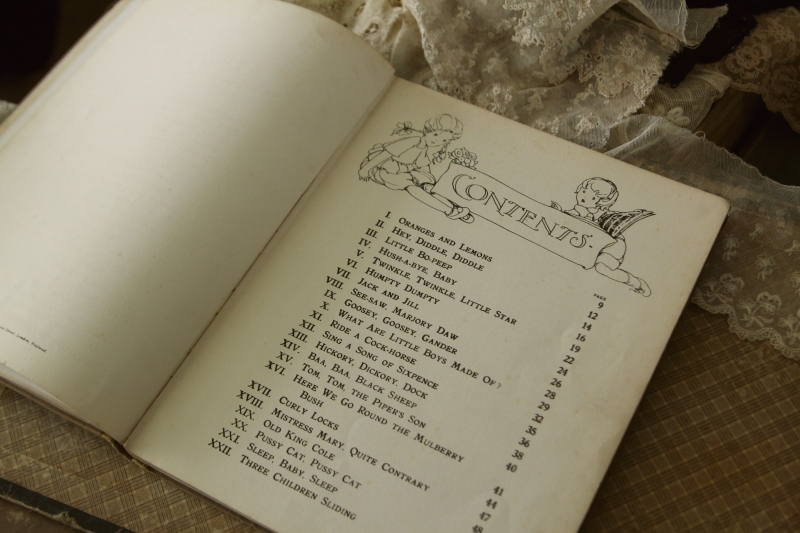 CONTENTS.
PAGE
I. ORANGES AND LEMONS 9
II. HEY, DIDDLE, DIDDLE 12
III. LITTLE BO-PEEP 14
IV. HUSH-A-BYE, BABY 16
V. TWINKLE, TWINKLE, LITTLE STAR 19
VI. HUMPTY DUMPTY 22
VII. JACK AND JILL 24
VIII. SEE-SAW, MARJORY DAW 26
IX. GOOSEY, GOOSEY, GANDER 28
X. WHAT ARE LITTLE BOYS MADE OF? 29
XI. RIDE A COCK-HORSE 32
XII. SING A SONG OF SIXPENCE 35
XIII. HICKORY, DICKORY, DOCK 36
XIV. BAA, BAA, BLACK SHEEP 38
XV. TOM, TOM, THE PIPER'S SON 40
XVI. HERE WE GO ROUND THE MULBERRY
BUSH 41
XVII. CURLY LOCKS 44
XVIII. MISTRESS MARY, QUITE CONTRARY 47
XIX. OLD KING COLE 48
XX. PUSSY CAT, PUSSY CAT
XXI. SLEEP, BABY, SLEEP
XXII. THREE CHILDREN SLIDING